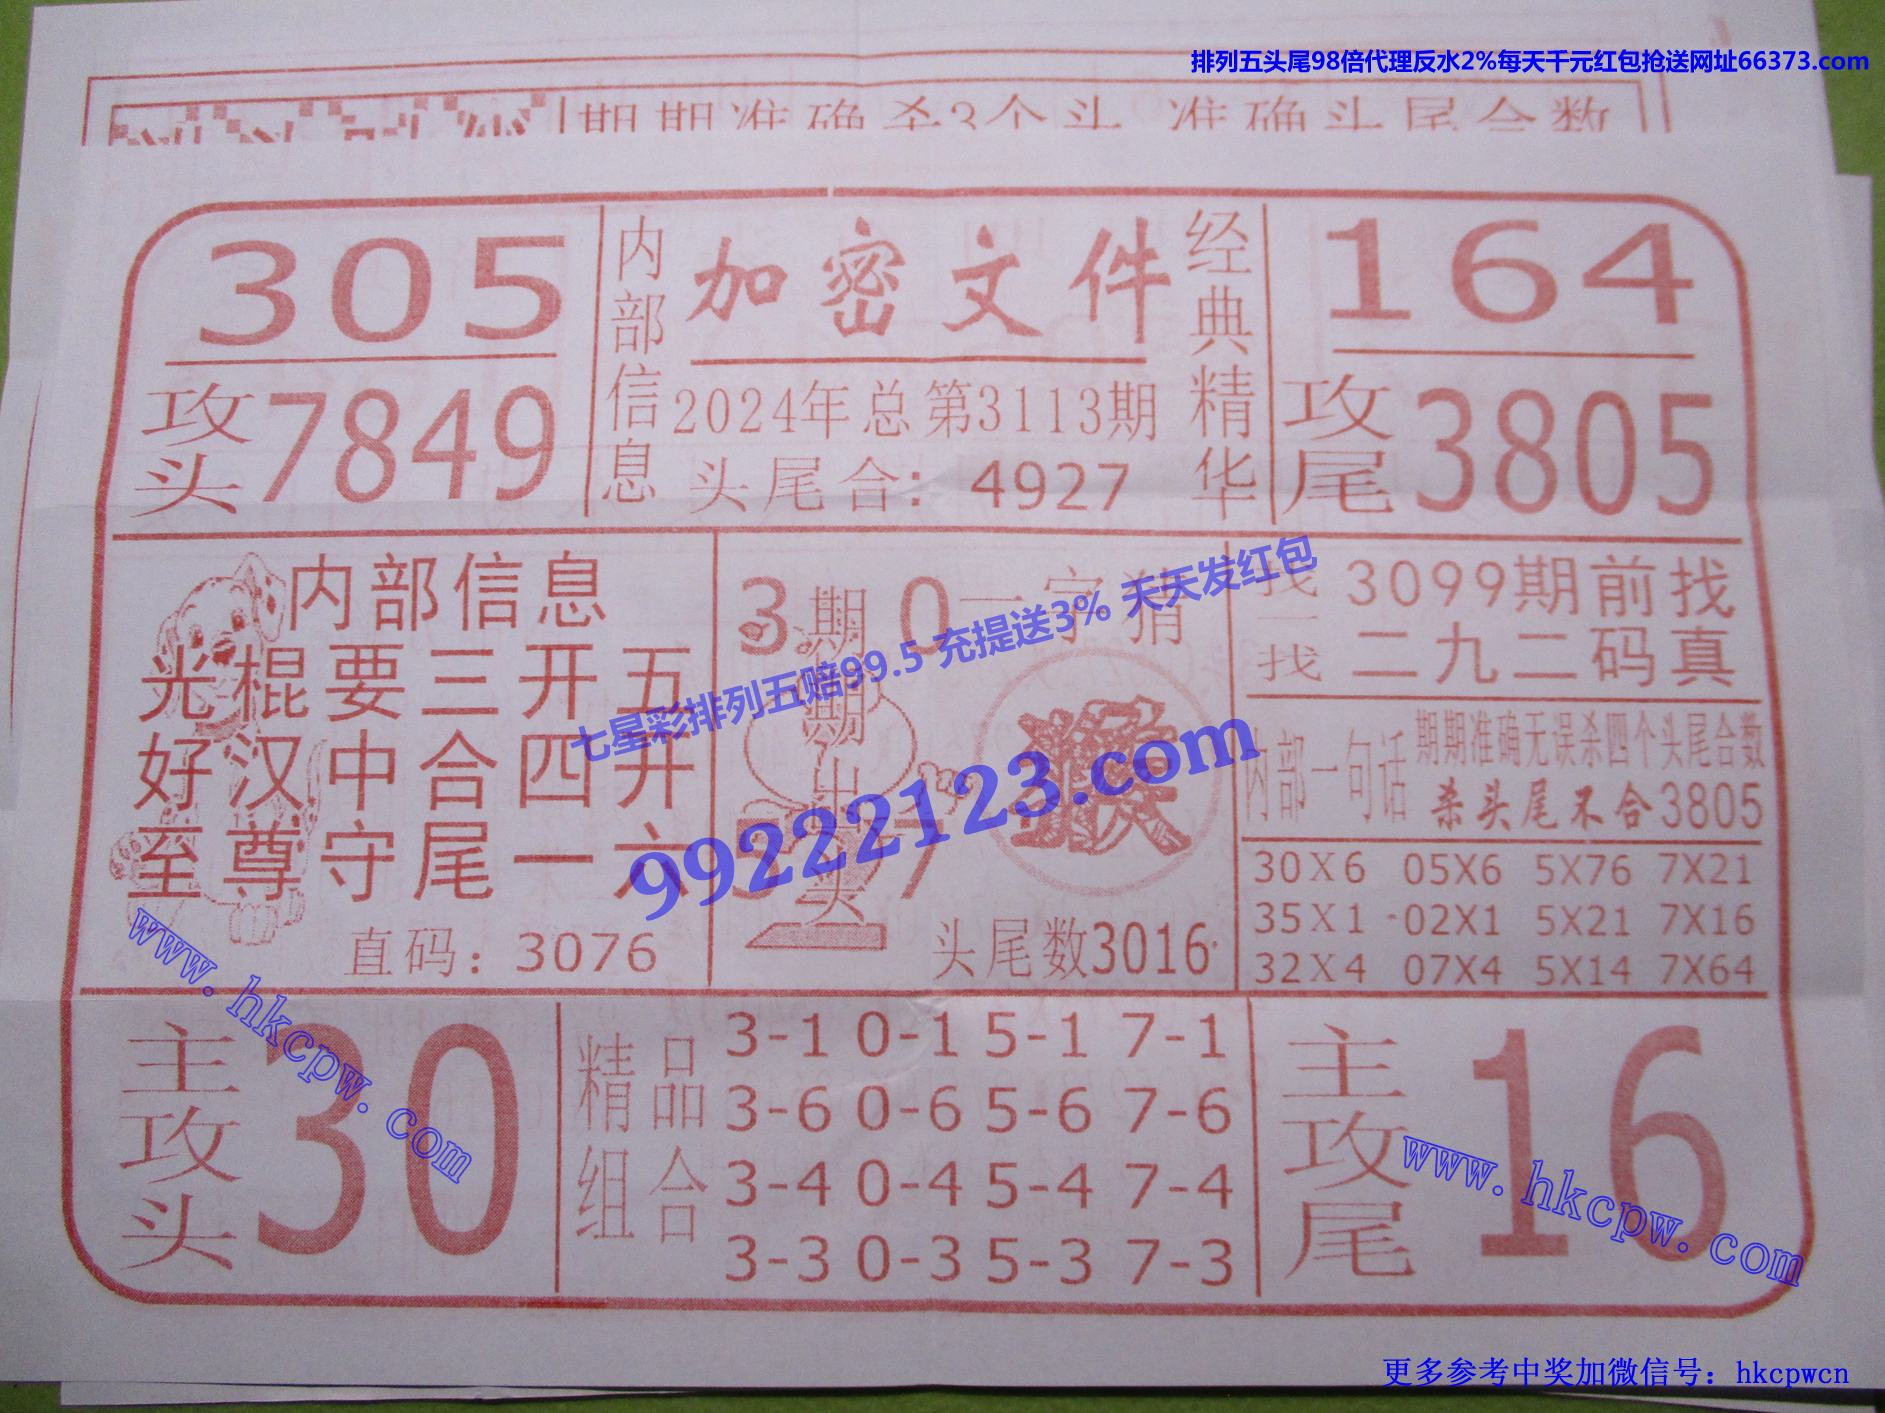 排列五头尾98倍代理反水2%每天千元红包抢送网址66373.com
期期准确杀3个头 准确头尾合数
305
攻头 7849
内部信息
加密文件
2024年总第3113期
头尾合: 4927
经典精华
164
攻尾 3805
内部信息
光棍要三开五
好汉中合四开
至尊守尾一六
直码: 3076
3 0 一字猜
期期出头
5 7
猴
头尾数3016
找一找
3099期前找
二九二码真
内部一句话
期期准确无误杀四个头尾合数
杀头尾不合3805
30X6 05X6 5X76 7X21
35X1 02X1 5X21 7X16
32X4 07X4 5X14 7X64
七星彩排列五赔99.5 充提送3% 天天发红包
99222123.com
主攻头 30
精品组合
3-1 0-1 5-1 7-1
3-6 0-6 5-6 7-6
3-4 0-4 5-4 7-4
3-3 0-3 5-3 7-3
主攻尾 16
www.hkcpw.com
www.hkcpw.com
更多参考中奖加微信号：hkcpwcn